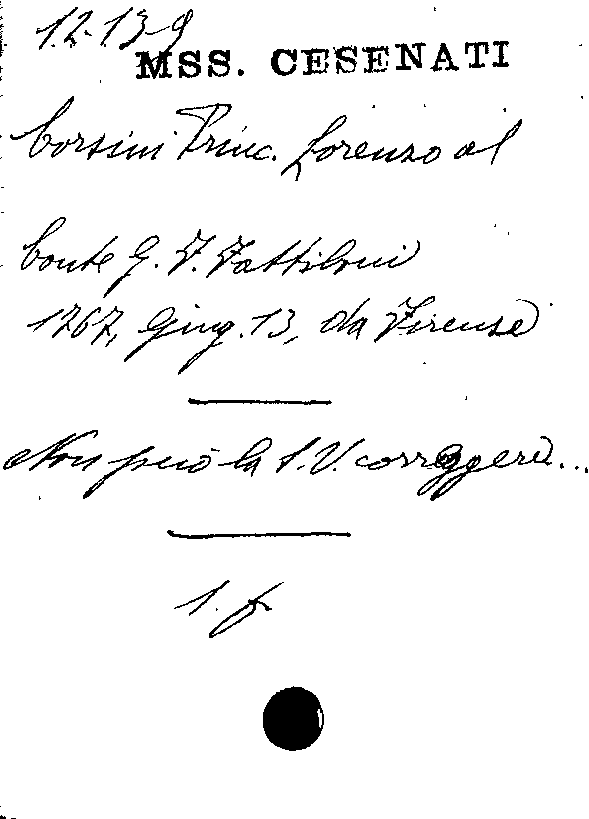 12.139
MSS. CESENATI
Corsini Princ. Lorenzo al
Conte G. F. Fattiboni
1767, Giug. 13, da Firenze
Non può la S. V. correggere...
1. f